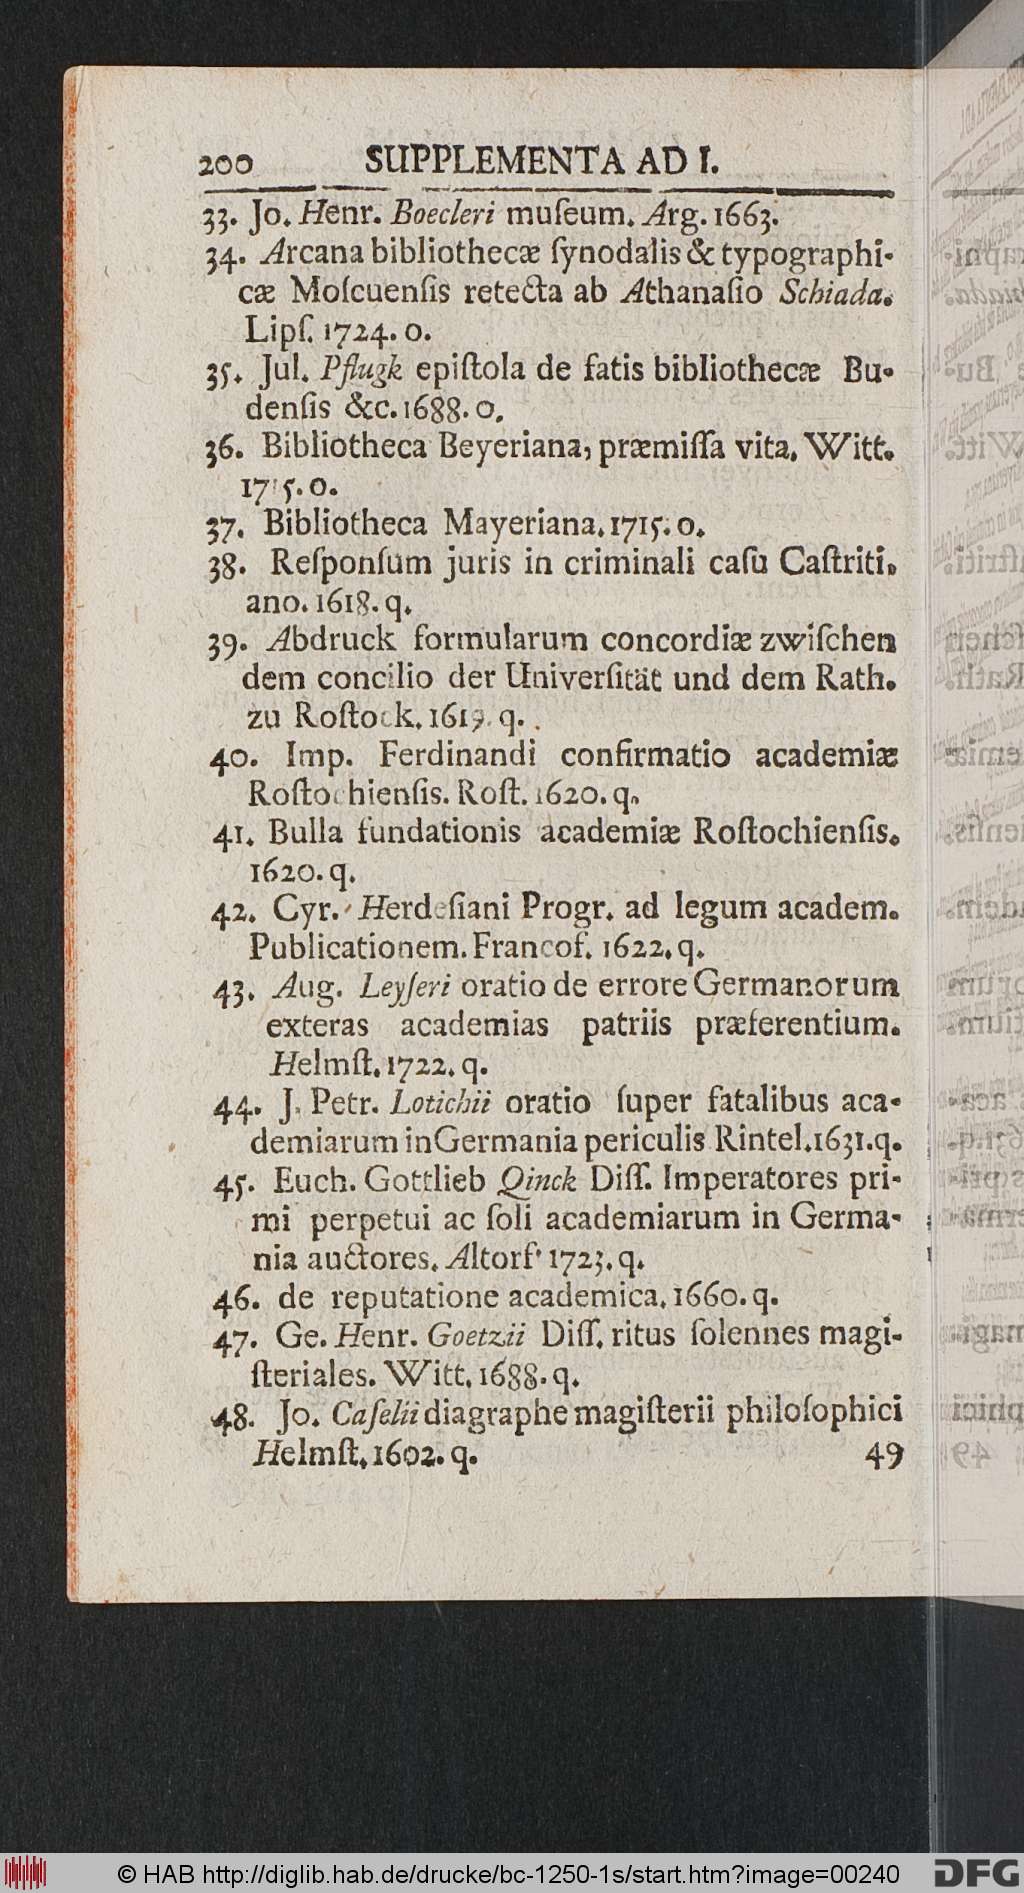 200 SUPPLEMENTA AD I.
33. Jo. Henr. Boecleri muſeum. Arg. 1663.
34. Arcana bibliothecæ ſynodalis & typographi-
cæ Moſcuenſis retecta ab Athanaſio Schiada.
Lipſ. 1724. o.
35. Jul. Pflugk epiſtola de fatis bibliothecæ Bu-
denſis &c. 1688. o.
36. Bibliotheca Beyeriana, præmiſſa vita. Witt.
17 5. o.
37. Bibliotheca Mayeriana. 1715. o.
38. Reſponſum juris in criminali caſu Caſtriti,
ano. 1618. q.
39. Abdruck formularum concordiæ zwiſchen
dem concilio der Univerſität und dem Rath.
zu Roſtock. 1619. q.
40. Imp. Ferdinandi confirmatio academiæ
Roſtochienſis. Roſt. 1620. q.
41. Bulla fundationis academiæ Roſtochienſis.
1620. q.
42. Cyr. Herdeſiani Progr. ad legum academ.
Publicationem. Francof. 1622. q.
43. Aug. Leyſeri oratio de errore Germanorum
exteras academias patriis præferentium.
Helmſt. 1722. q.
44. J. Petr. Lotichii oratio ſuper fatalibus aca-
demiarum in Germania periculis Rintel. 1631. q.
45. Euch. Gottlieb Qinck Diſſ. Imperatores pri-
mi perpetui ac ſoli academiarum in Germa-
nia auctores. Altorf' 1723. q.
46. de reputatione academica. 1660. q.
47. Ge. Henr. Goetzii Diſſ. ritus ſolennes magi-
ſteriales. Witt. 1688. q.
48. Jo. Caſelii diagraphe magiſterii philoſophici
Helmſt. 1602. q. 49
© HAB http://diglib.hab.de/drucke/bc-1250-1s/start.htm?image=00240 DFG